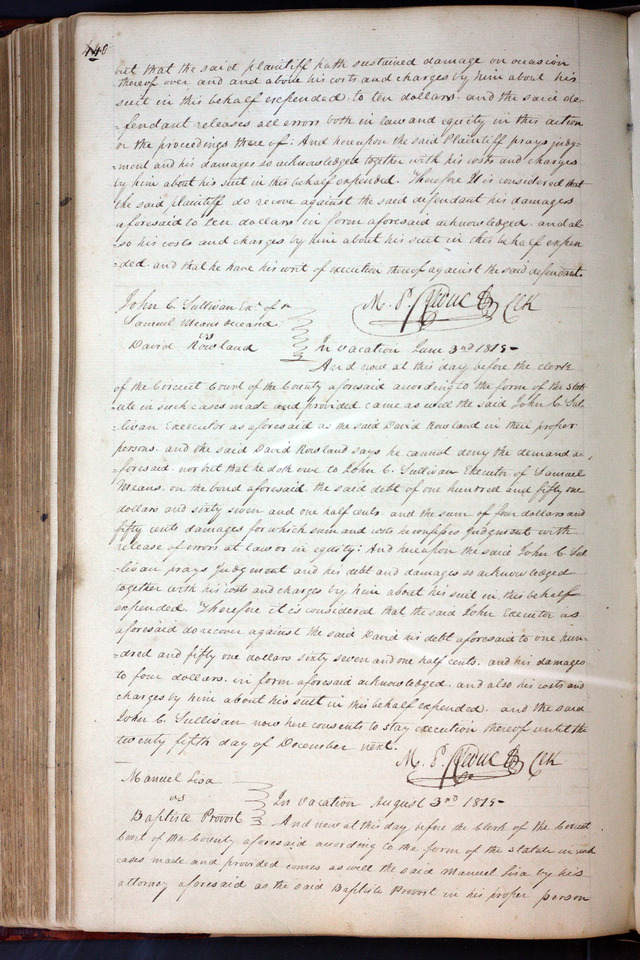 440
but that the said plaintiff hath sustained damage on ocasion
thereof over and and above his costs and charges by him about his
suit in this behalf expended to ten dollars. and the said de-
-fendant releases all errors both in law and equity in this action
or the proceedings thereof: And hereupon the said Plaintiff prays judg-
-ment and his damages so acknowledged together with his costs and charges
by him about his suit in this behalf expended. Therefore It is considered that
the said plaintiff do recover against the said defendant his damages
aforesaid to ten dollars in form aforesaid acknowledged. and al-
-so his costs and charges by him about his suit in this behalf expen-
-ded. and that he have his writ of execution thereof against the said defendant.
M. P. Leduc Clk
John C. Sullivan Exr. of
Samuel Means deceasd
vs
David Rowland
In vacation June 3rd 1815-
And now at this day before the clerk
of the Circuit Court of the County aforesaid according to the form of the stat-
-ute in such cases made and provided came as well the said John C. Sul-
-livan Executor as aforesaid as the said David Rowland in their proper
persons. and the said David Rowland says he cannot deny the demand a-
-foresaid. nor but that he doth owe to John C. Sullivan Executor of Samuel
Means. on the bond aforesaid. the said debt of one hundred and fifty one
dollars and sixty seven and one half cents. and the sum of four dollars and
fifty cents damages for which sum and costs he confesses Judgment with
release of errors at law or in equity: And hereupon the said John C. Sul-
-livan prays Judgment and his debt and damages so acknowledged
together with his costs and charges by him about his suit in this behalf
expended. Therefore it is considered that the said John Executor as
aforesaid do recover against the said David his debt aforesaid to one hun-
-dred and fifty one dollars sixty seven and one half cents. and his damages
to four dollars. in form aforesaid acknowledged. and also his costs and
charges by him about his suit in this behalf expended. and the said
John C. Sullivan now here consents to stay execution thereof until the
twenty fifth day of December next.
M. P. Leduc Clk
Manuel Lisa
vs
Baptiste Provort
In vacation August 3rd 1815-
And now at this day, before the Clerk of the Circuit
Court of the County aforesaid according to the form of the statute in such
cases made and provided comes as well the said Manuel Lisa by his
attorney aforesaid as the said Baptiste Provort in his proper person